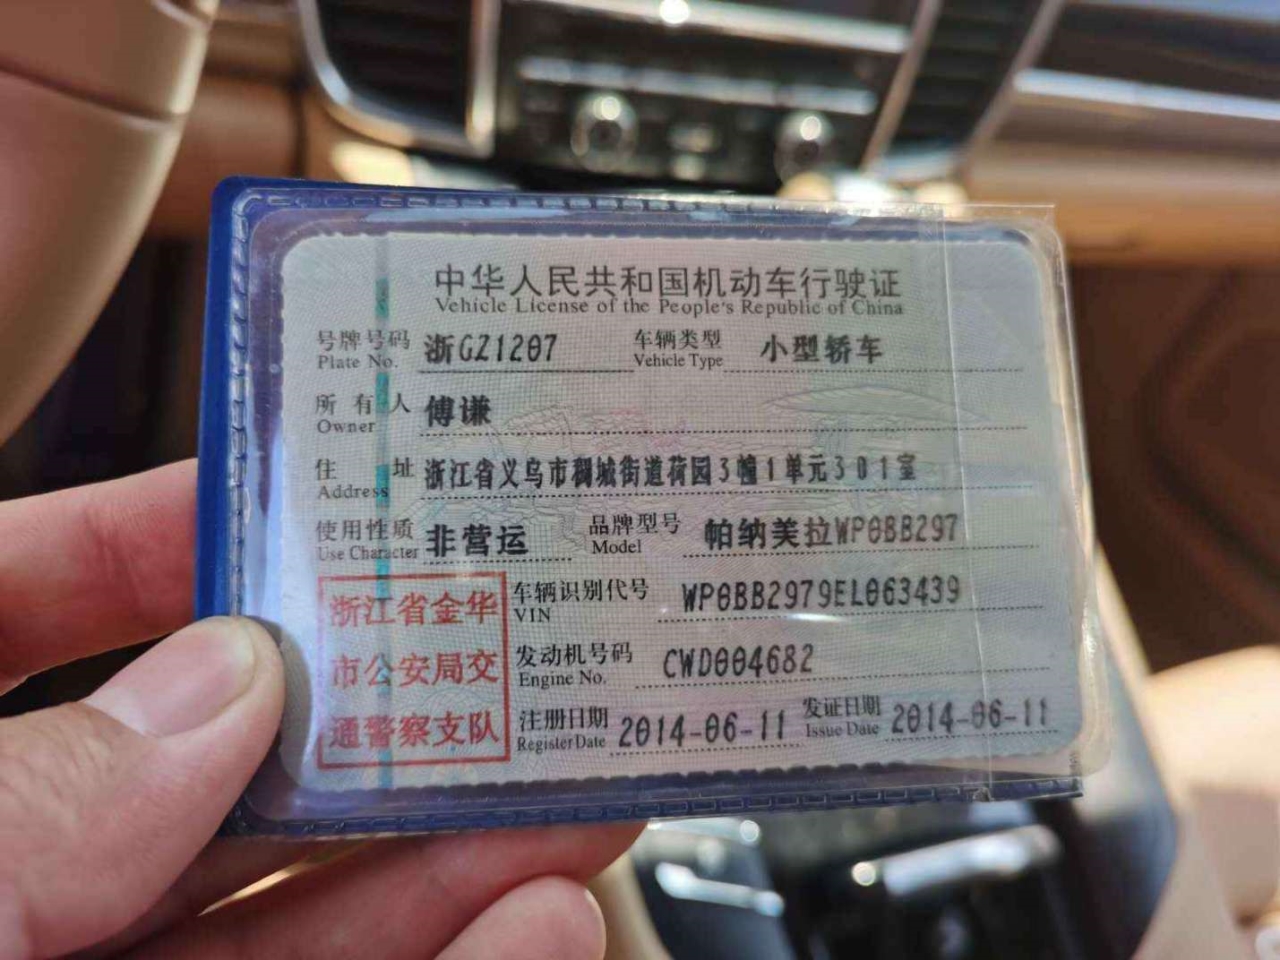 中华人民共和国机动车行驶证
Vehicle License of the People's Republic of China
号牌号码 浙GZ1207 车辆类型 小型轿车
Plate No. Vehicle Type
所有人 傅谦
Owner
住址 浙江省义乌市稠城街道荷园3幢1单元301室
Address
使用性质 非营运 品牌型号 帕纳美拉WP0BB297
Use Character Model
浙江省金华
市公安局交
通警察支队
车辆识别代号 WP0BB2979EL063439
VIN
发动机号码 CWD004682
Engine No.
注册日期 2014-06-11 发证日期 2014-06-11
Register Date Issue Date